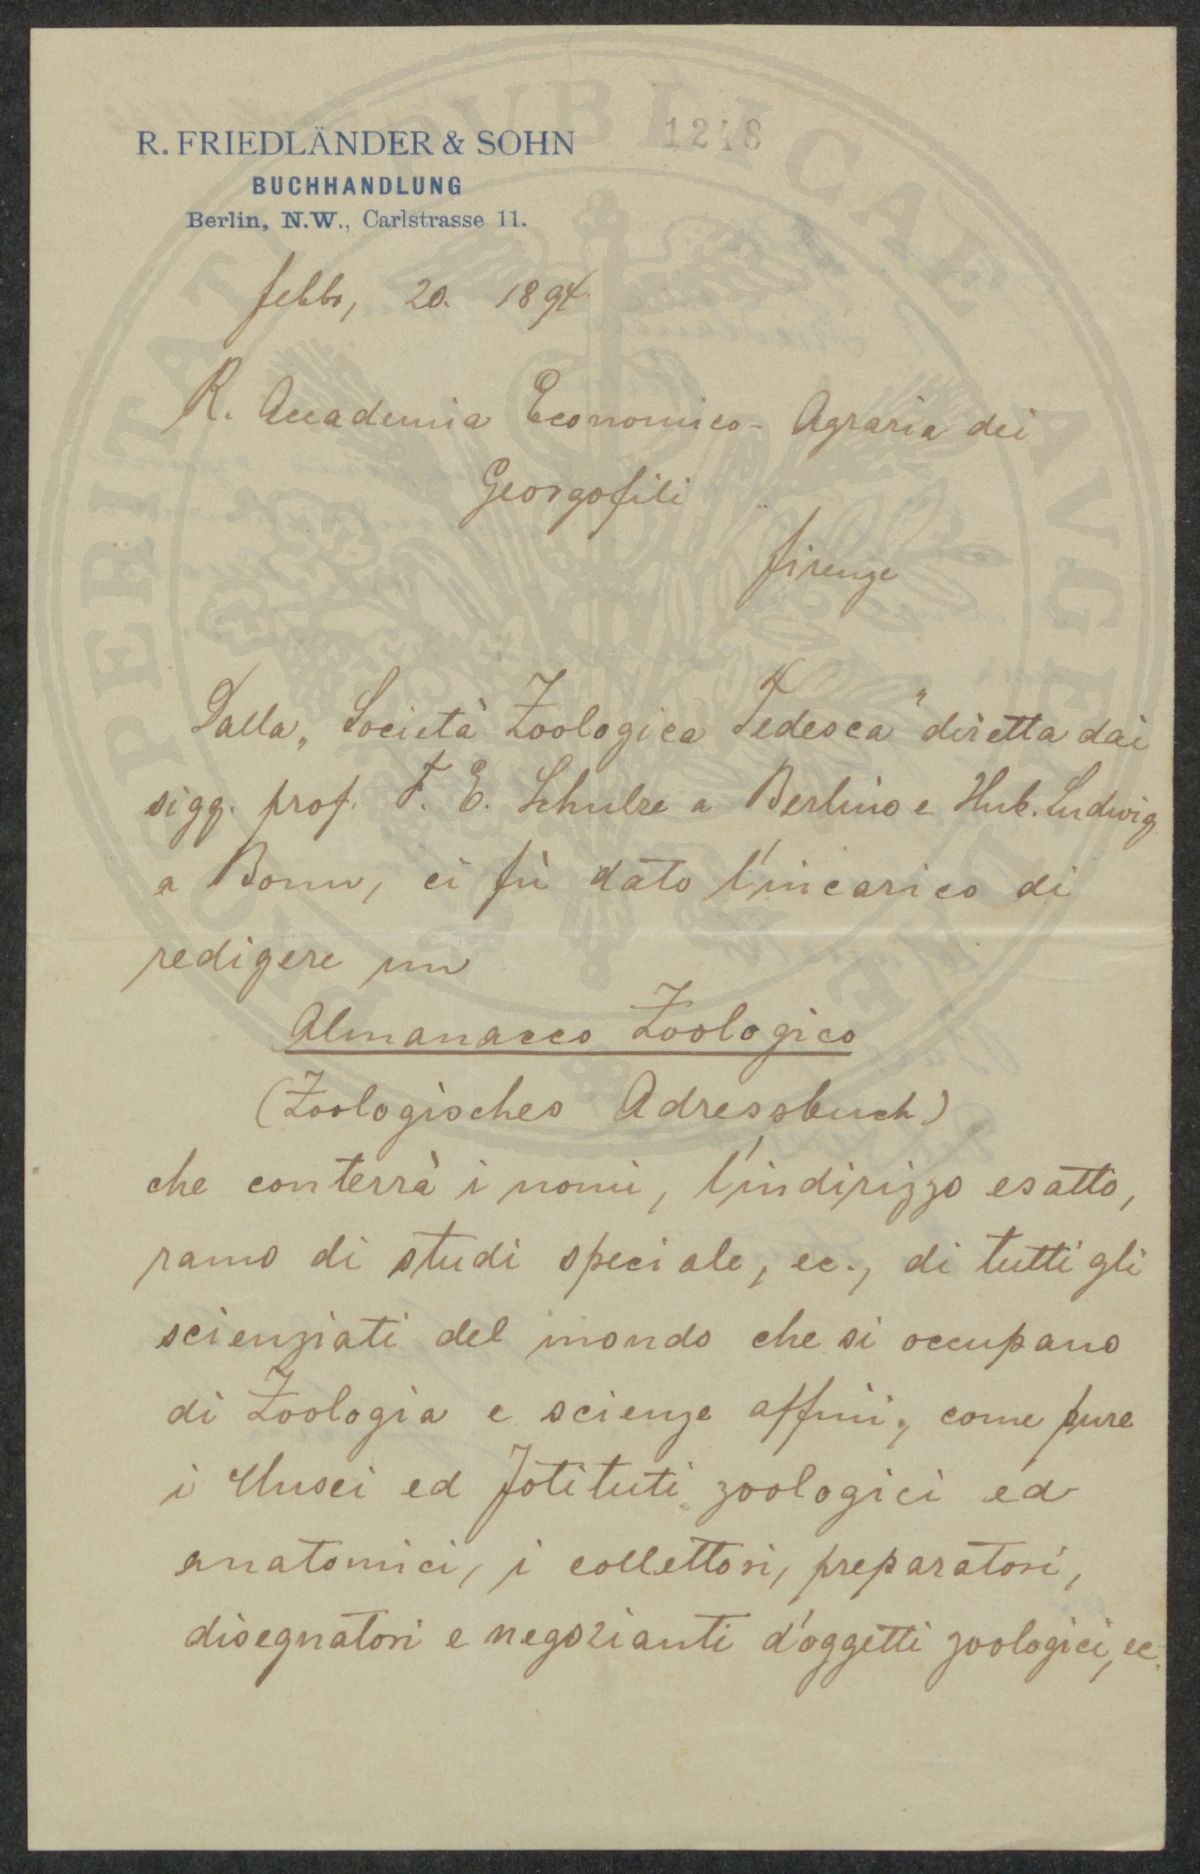 R. FRIEDLÄNDER & SOHN
BUCHHANDLUNG
Berlin, N.W., Carlstrasse 11.
1248
febbr, 20. 1894.
R. Accademia Economico-Agraria dei
Georgofili
Firenze
Dalla „Società Zoologica Tedesca" diretta dai
sigg. prof. F. E. Schulze a Berlino e Hub. Ludwig
a Bonn, ci fù dato l'incarico di
redigere un
Almanacco Zoologico
(Zoologisches Adressbuch)
che conterrà i nomi, l'indirizzo esatto,
ramo di studi speciale, ec., di tutti gli
scienziati del mondo che si occupano
di Zoologia e scienze affini, come pure
i Musei ed Istituti zoologici ed
anatomici, i collettori, preparatori,
disegnatori e negozianti d'oggetti zoologici, ec.
PROSPERITATI PUBLICAE AVGENDAE